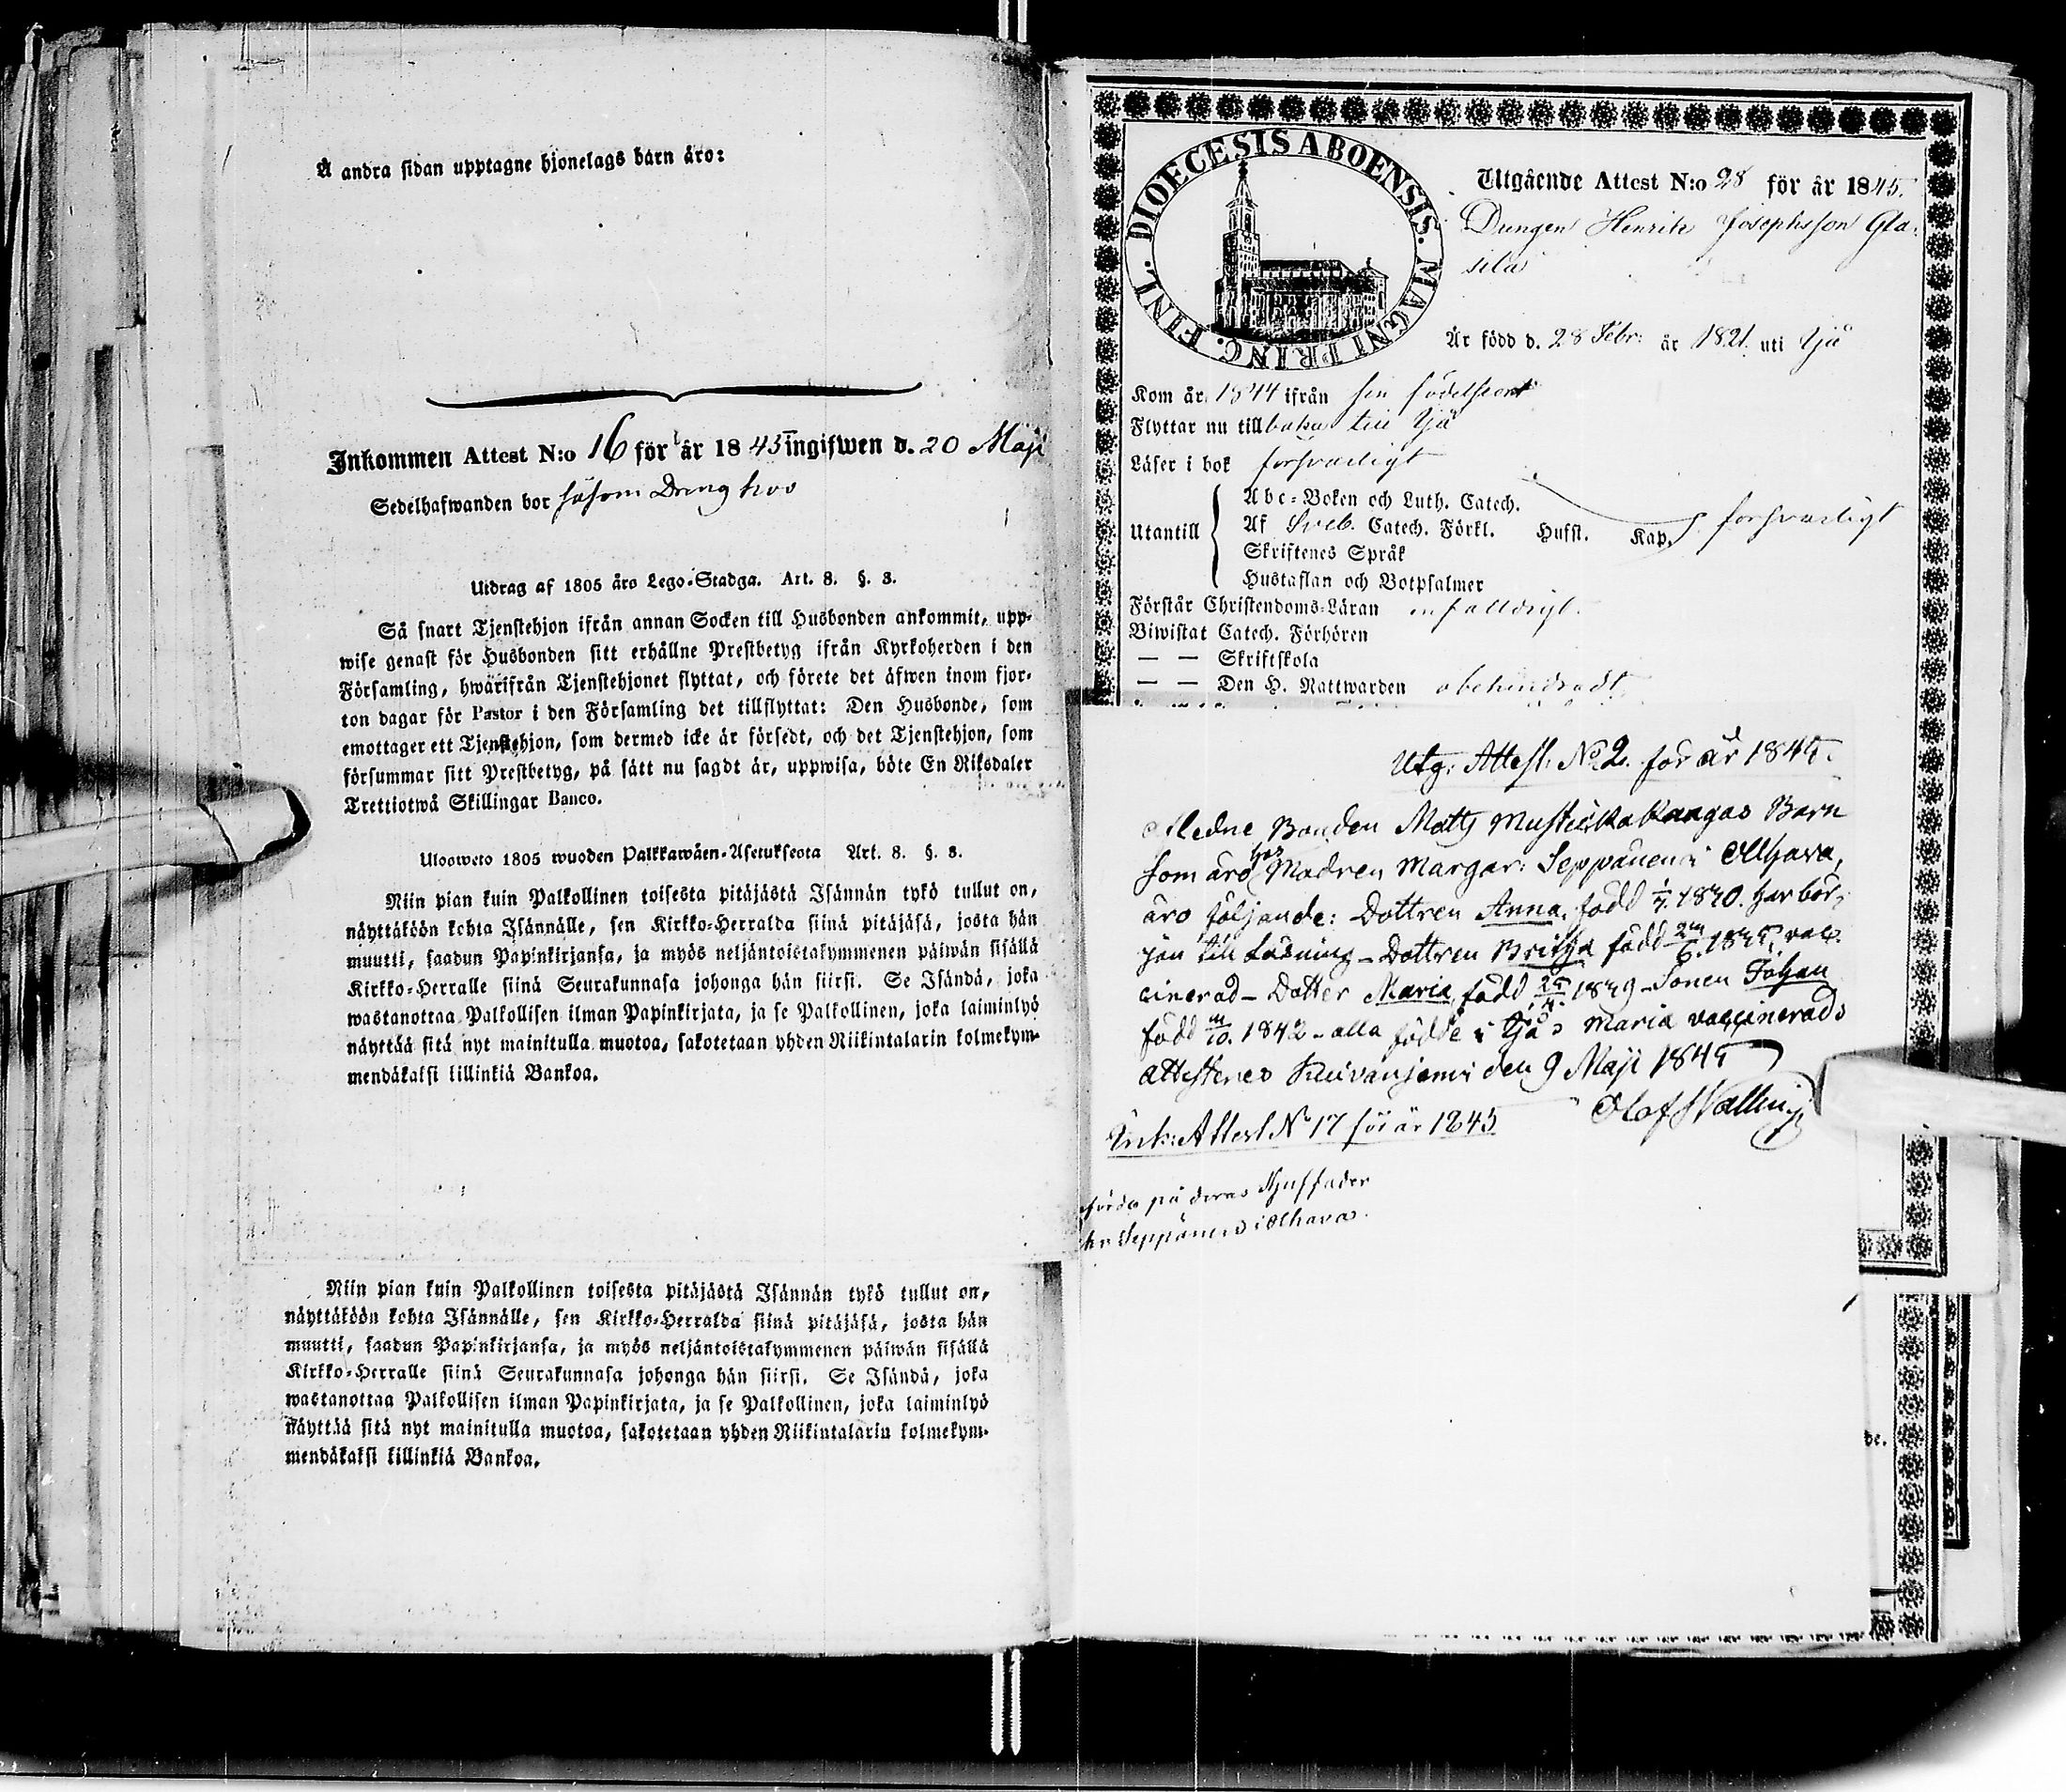 Å andra sidan upptagne hjonelags barn äro:
Inkommen Attest N:o 16 för år 1845 ingifwen d. 20 Maji
Sedelhafwanden bor såsom Dreng hos
Utdrag af 1805 års Lego-Stadga. Art. 8. §. 3.
Så snart Tjenstehjon ifrån annan Socken till Husbonden ankommit, upp-
wise genast för Husbonden sitt erhållne Prestbetyg ifrån Kyrkoherden i den
Församling, hwarifrån Tjenstehjonet flyttat, och förete det äfwen inom fjor-
ton dagar för Pastor i den Församling det tillflyttat: Den Husbonde, som
emottager ett Tjenstehjon, som dermed icke är försedt, och det Tjenstehjon, som
försummar sitt Prestbetyg, på sätt nu sagdt är, uppwisa, böte En Riksdaler
Trettiotwå Skillingar Banco.
Ulosweto 1805 wuoden Palkkawäen-Asetuksesta Art. 8. §. 3.
Niin pian kuin Palkollinen toisesta pitäjästä Isännän tykö tullut on,
näyttäköön kohta Isännälle, sen Kirkko-Herralda siinä pitäjäsä, josta hän
muutti, saadun Papinkirjansa, ja myös neljäntoistakymmenen päiwän sisällä
Kirkko-Herralle siinä Seurakunnasa johonga hän siirsi. Se Isändä, joka
wastanottaa Palkollisen ilman Papinkirjata, ja se Palkollinen, joka laiminlyö
näyttää sitä nyt mainitulla muotoa, sakotetaan yhden Riikintalarin kolmekym-
mendäkaksi killinkiä Bankoa.
Niin pian kuin Palkollinen toisesta pitäjästä Isännän tykö tullut on,
näyttäköön kohta Isännälle, sen Kirkko-Herralda siinä pitäjäsä, josta hän
muutti, saadun Papinkirjansa, ja myös neljäntoistakymmenen päiwän sisällä
Kirkko-Herralle siinä Seurakunnasa johonga hän siirsi. Se Isändä, joka
wastanottaa Palkollisen ilman Papinkirjata, ja se Palkollinen, joka laiminlyö
näyttää sitä nyt mainitulla muotoa, sakotetaan yhden Riikintalarin kolmekym-
mendäkaksi killinkiä Bankoa.
DIOECESIS ABOENSIS. MAGNI PRINC. FINL.
Utgående Attest N:o 28 för år 1845.
Drengen Henrik Josephsson Gla-
sila
Är född d. 28 Febr: år 1821. uti Ijå
Kom år 1844 ifrån sin födelseort
Flyttar nu tillbaka till Ijå
Läser i bok försvarligt
Utantill
Abc-Boken och Luth. Catech.
Af Sveb. Catech. Förkl. Hufst. Kap. försvarligt
Skriftenes Språk
Hustaflan och Botpsalmer
Förstår Christendoms-Läran enfalldigt.
Biwistat Catech. Förhören
— — Skriftskola
— — Den H. Nattwarden obehindradt
Utg: Attest: No 2. för år 1845.
Afledne Bonden Matts Mustukkakangas Barn
som äro hos Modren Margar: Seppänen i Olhava,
äro följande: Dottren Anna, född 1/7. 1830. har bör-
jan till Läsning - Dottren Britha född 24/6. 1835, vac-
cinerad - Dotter Maria, född 25/4. 1839 - Sonen Johan
född 4/10. 1842 - alla födde i Ijå, Maria vaccinerad
attesteras Kuivaniemi den 9 Maji 1845
Olof Walling
Ink: Attest No 17 för år 1845
förda på deras Stjuffader
Seppänen i Olhava.
de.